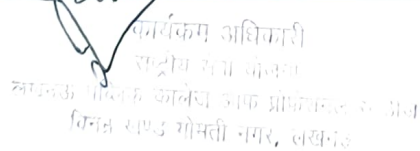 कार्यक्रम अधिकारी
राष्ट्रीय सेवा योजना
लखनऊ पब्लिक कालेज आफ प्रोफेशनल स्टडीज
विनय खण्ड गोमती नगर, लखनऊ